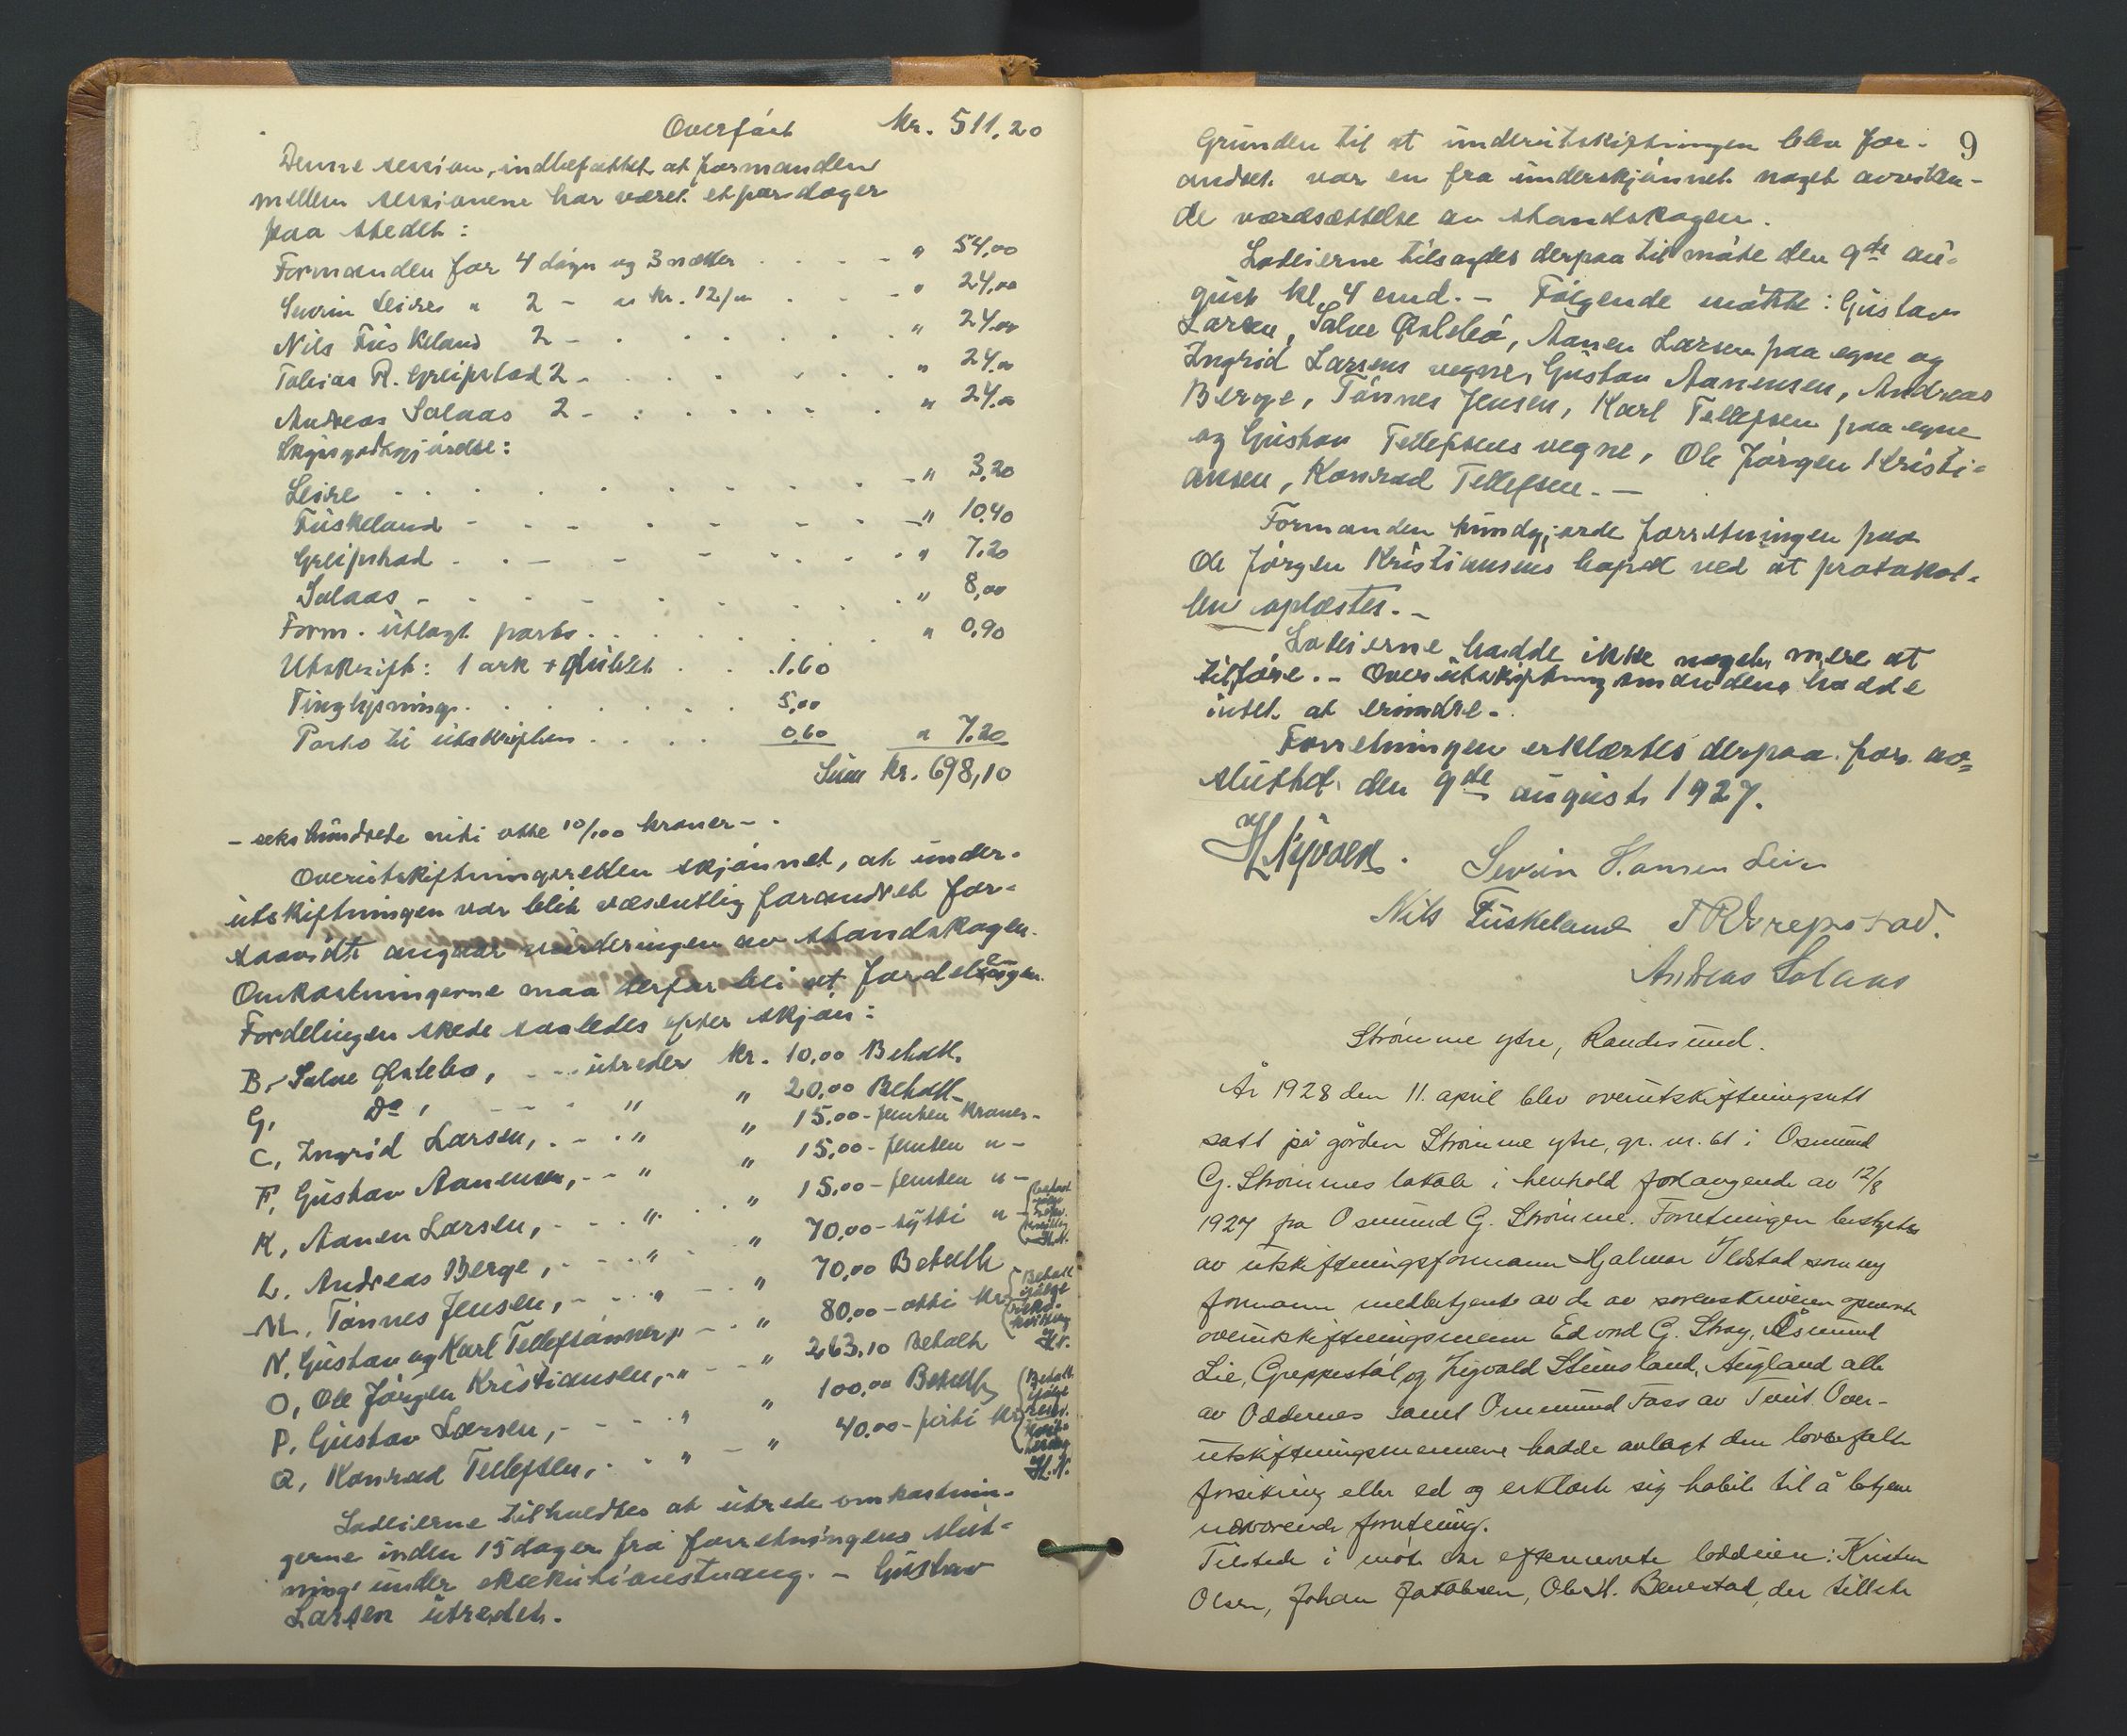 Overført Kr. 511.20
Denne session, indbefattet at formanden
mellem sessionene har været et par dager
paa stedet:
Formanden for 4 døgn og 3 nætter . . . . " 54,00
Severin Leire " 2 - a kr. 12/00 . . . " 24,00
Nils Fuskeland 2 - . . . . . . " 24,00
Tobias R. Greipstad 2 - . . . . . " 24,00
Andreas Solaas 2 - . . . . . . " 24,00
Skyssgodtgjørelse:
Leire - . . . . . . . . . - " 3,20
Fuskeland - - - . . - . . . - " 10,40
Greipstad . . - - - . . . . " 7.20
Solaas - . . . . . . . . . " 8,00
Form. utlagt porto . . . . . . . " 0.90
Utskrift: 1 ark + . . . 1.60
Tinglysning . . . . . . . 5,00
Porto til utskriften . . . . 0.60 " 7.20
Sum kr. 698,10
- seks hundrede nitti otte 10/100 kroner - .
Overutskiftningsretten skjønnet, at under-
utskiftningen var blit væsentlig forandret for-
saavidt angaar vurderingen av standskogen.
Omkostningerne maa derfor bli at fordele
Fordelingen skede saaledes efter skjøn:
B, Salve Østebø, - - - utreder kr. 10,00 Betalt.
G, Do , - - - " " 20,00 Betalt -
C, Ingrid Larsen, . - . " " 15.00 - femten kroner -
F, Gustav Aanensen, - - " " 15,00 - femten " -
K, Aanen Larsen, - - . " " 15,00 - femten " -
L, Andreas Berge, . - - " " 70,00 - sytti " -
M, Tønnes Jensen, - - . " " 70,00 Betalt
N, Gustav og Karl Tellefsønner, " - . " 80,00 - otti kr. Betalt ifølge kvittering H.N.
O, Ole Jørgen Kristiansen, - " - - " 263.10 Betalt
P, Gustav Larsen, - - - . " " 100,00 Betalt
Q, Konrad Tellefsen, . - " - " 40.00 - firti kr. Betalt ifølge H.N.
Lodeierne tilholdtes at utrede omkostnin-
gerne inden 15 dager fra forretningens slut-
ning under eksekutionstvang. - Gustav
Larsen utredet.
9
Grunden til at underutskiftningen blev for-
andret var en fra underskjønnet noget avviken-
de værdsættelse av standskogen.
Lodeierne tilsagdes derpaa til møte den 9de au-
gust kl. 4 emd. - Følgende møtte: Gustav
Larsen, Salve Østebø, Aanen Larsen paa egne og
Ingrid Larsens vegne, Gustav Aanensen, Andreas
Berge, Tønnes Jensen, Karl Tellefsen paa egne
og Gustav Tellefsens vegne, Ole Jørgen Kristi-
ansen, Konrad Tellefsen. -
Formanden kundgjorde forretningen paa
Ole Jørgen Kristiansens bopæl ved at protokol-
len oplæstes. -
Lodeierne hadde ikke noget mere at
tilføre. - Overutskiftningsmændene hadde
intet at erindre. .
Forretningen erklærtes derpaa for av-
sluttet den 9de august 1927.
H. Nyvoll. Severin Hansen Leire
Nils Fuskeland T R Greipstad.
Andreas Solaas
Strømme ytre, Randesund.
År 1928 den 11. april blev overutskiftningsrett
satt på gården Strømme ytre, gr. nr. 61 i Osmund
G. Strømmes lokale i henhold forlangende av 12/8
1927 fra Osmund G. Strømme. Forretningen bestyrtes
av utskiftningsformann Hjalmar Ildstad som ny
formann medbetjent av de av sorenskriveren opnevnte
overutskiftningsmenn Edvard G. Stray, Åsmund
Lie, Greppestøl, og Sigvald Stemsland, Augland alle
av Oddernes samt Ommund Foss av Tveit. Over-
utskiftningsmennene hadde avlagt den lovbefalte
forsikring eller ed og erklærte sig habile til å betjene
nærværende forretning.
Tilstede i møtet var efternevnte loddeiere: Kristen
Olsen, Johan Jakobsen, Ole H. Benestad, der tillike